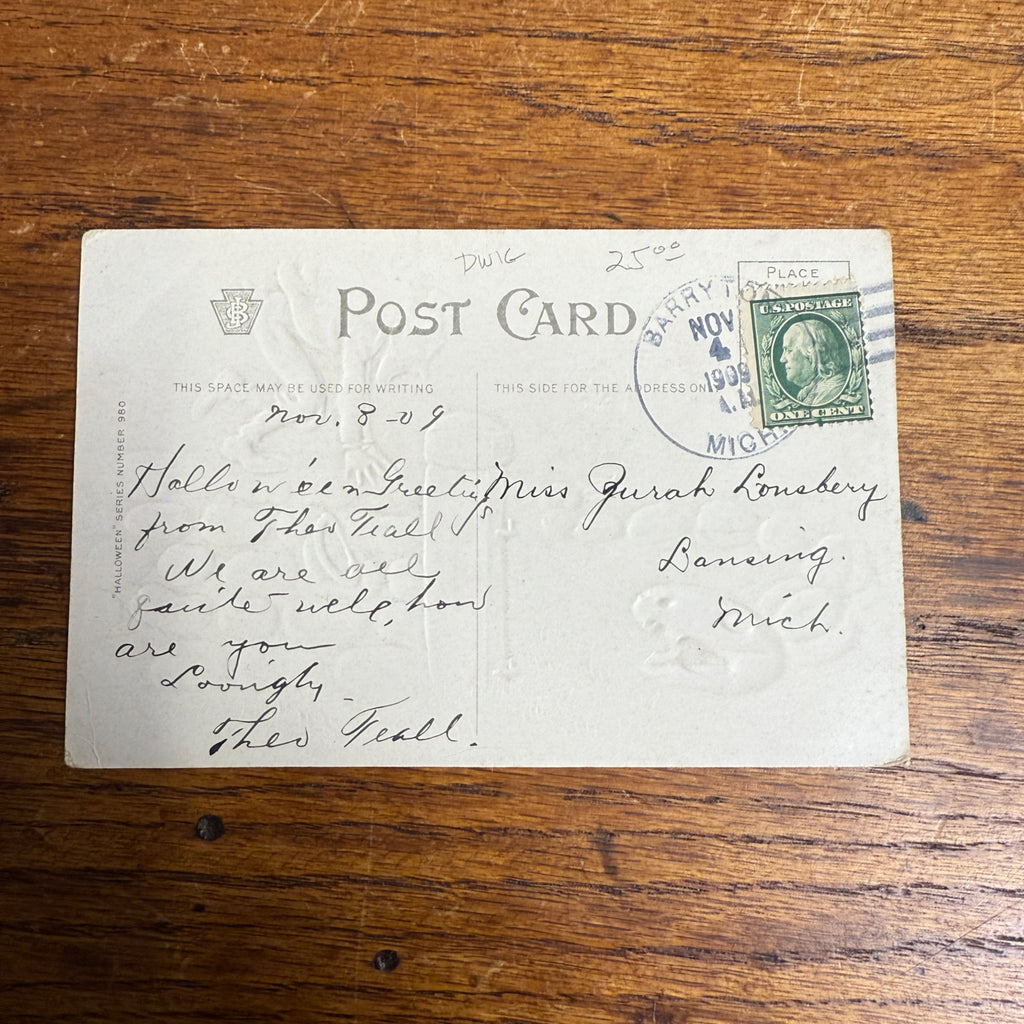 DWIG 25⁰⁰
PLACE
POST CARD
BARRYTON
NOV
4
1909
A.M
MICH.
U.S. POSTAGE
ONE CENT
THIS SPACE MAY BE USED FOR WRITING
THIS SIDE FOR THE ADDRESS ON
"HALLOWEEN" SERIES NUMBER 980
Nov. 3-09
Hallow'een Greetings
from Theo Teall
We are all
quite well, how
are you
Lovingly
Theo Teall.
Miss Zurah Lonsbery
Lansing.
Mich.